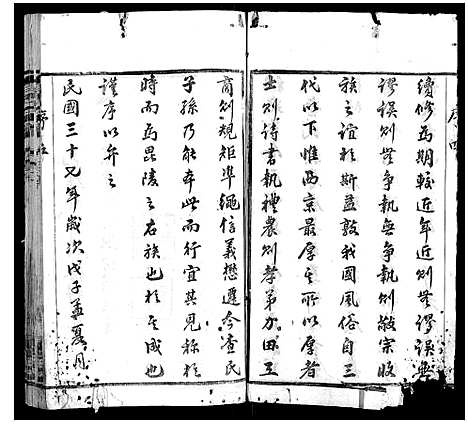 續修為期較近年近則無謬誤無
謬誤則無爭執無爭執則敬宗收
族之誼於斯益敦我國風俗自三
代以下惟西京最厚其所以厚者
士則詩書執禮農則孝弟力田工
商則規矩準繩信義懋遷今查氏
子孫乃能本此而行宜其見稱於
時而為毘陵之名族也於其成也
謹序以弁之
民國三十又七年歲次戊子孟夏月
序